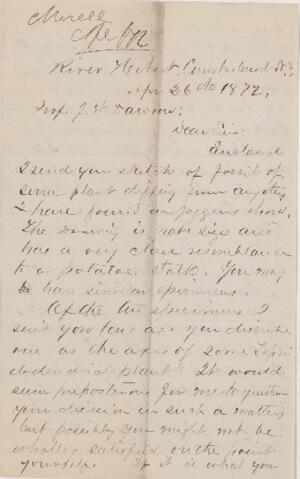 River Hebert, Cumberland N.S.
Apr 26th 1872.
Prof. J. W. Dawson;
Dear Sir.
Enclosed
I send you sketch of fossil of
some plant differing from any
I have found on Joggins shore.
The drawing is nat. size and
has a very close resemblance
to a potatoe stalk. You may
have similar specimens.
Of the two specimens I
sent you long ago you describe
one as "the axes of some Lepi
dodendroid plant" It would
seem preposterous for me to question
your decision in such a matter
but possibly you might not be
wholly satisfied on the point
yourself. If it is what you